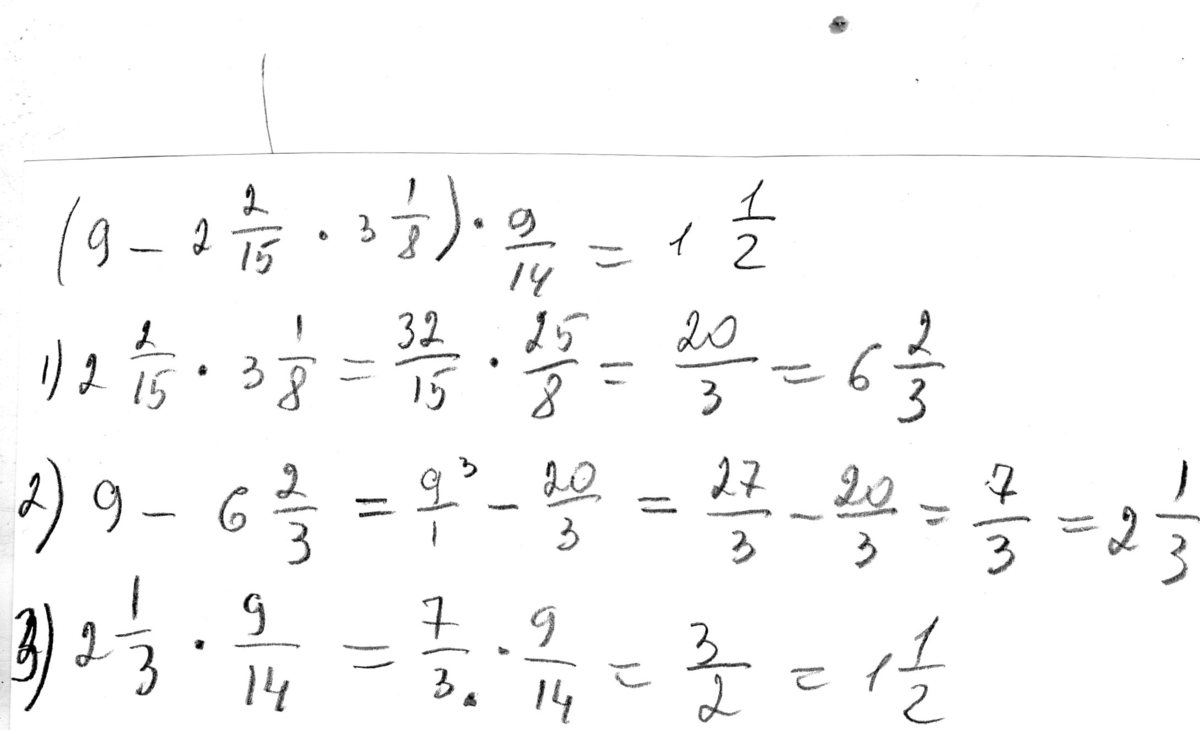 (9 - 2 2/15 · 3 1/8) · 9/14 = 1 1/2
1) 2 2/15 · 3 1/8 = 32/15 · 25/8 = 20/3 = 6 2/3
2) 9 - 6 2/3 = 9/1 ³ - 20/3 = 27/3 - 20/3 = 7/3 = 2 1/3
3) 2 1/3 · 9/14 = 7/3 · 9/14 = 3/2 = 1 1/2